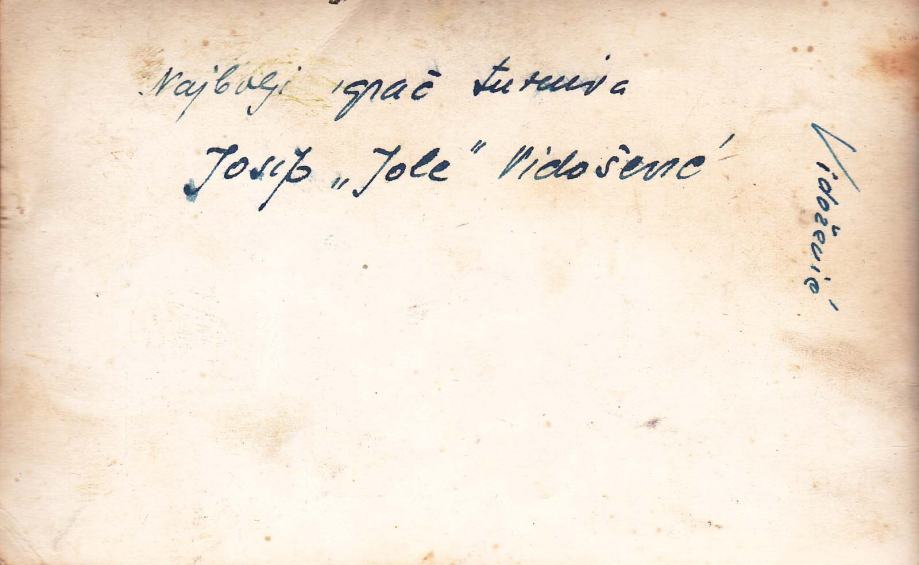 Najbolji igrač turnira
Josip „Jole" Vidošević
Vidožević